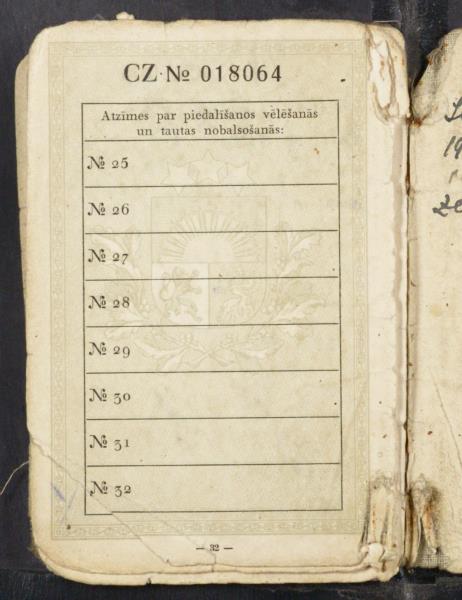 CZ № 018064
Atzīmes par piedalīšanos vēlēšanās
un tautas nobalsošanās:
№ 25
№ 26
№ 27
№ 28
№ 29
№ 30
№ 31
№ 32
— 32 —